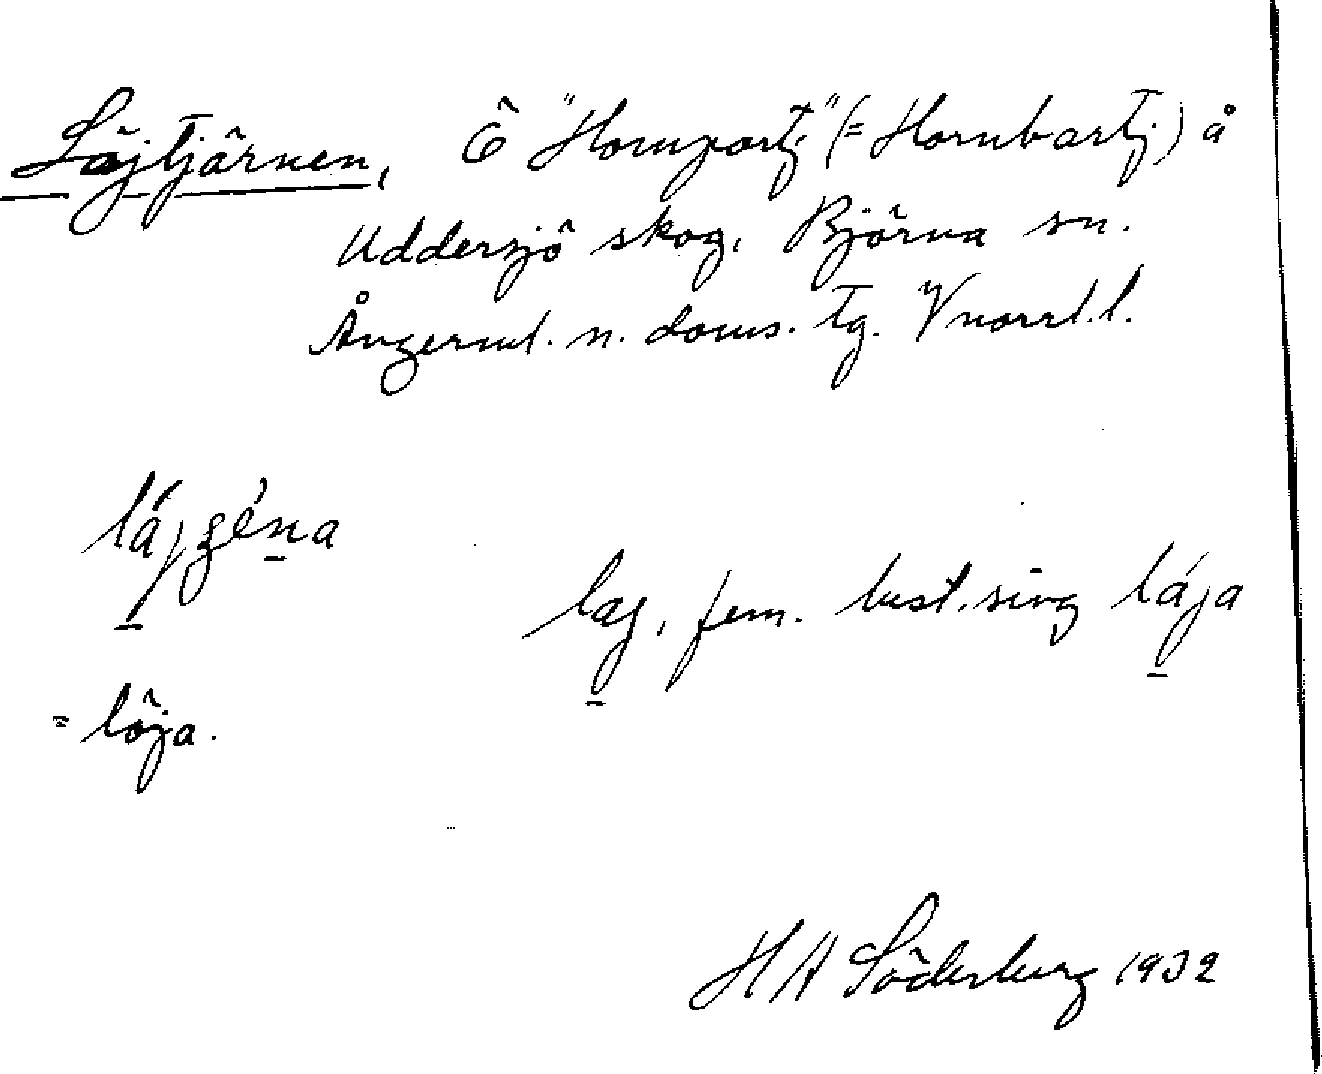 Löjtjärnen, Ö "Hornpartj." (= Hornbartj.) å
Uddersjö skog, Björna sn.
Ångerml. n. doms. tg. Vnorrl. l.
lájζéna
laj, fem. best. sing lája
= löja.
H A Söderberg 1932